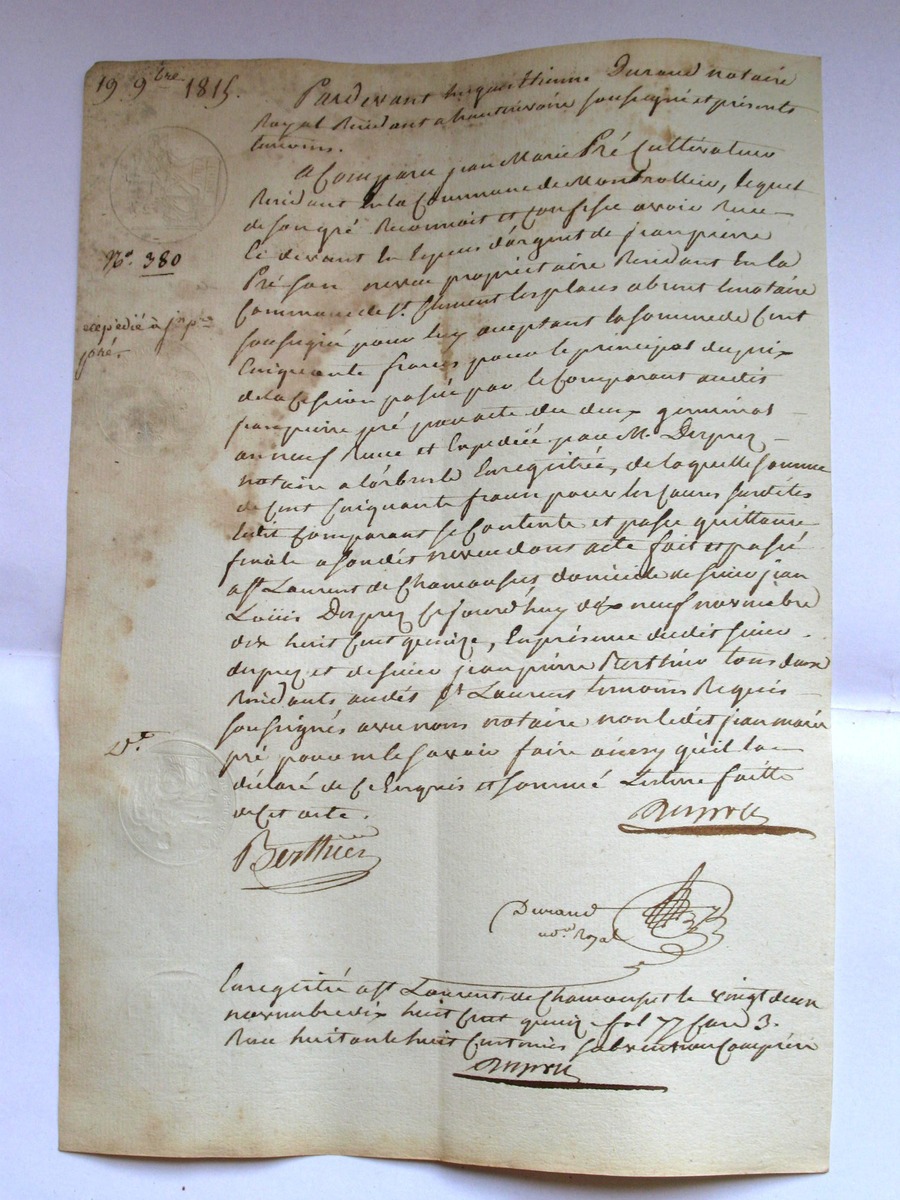 19 9bre 1815.
Pardevant Etienne Durand notaire
Royal Residant a hauterivoire soussigné et présents
temoins.
A Comparu jean Marie Pré Cultivateur
Residant En la Commune de Montrottier, lequel
de son gré Reconnoit et Confesse avoir Recu
Ci devant En Espces d'argent de jean pierre
Nº. 380
Pré son neveu propriétaire Residant En la
Commune de St. Clement les places absent le notaire
expédié à jn p.re
pré.
soussigné pour luy aceptant la somme de Cent
Cinquante francs pour le principal du prix
de la Cession passée par le Comparant audit
jean pierre pré par acte du deux germinal
an neuf Recu et Expedié par M. Desprez
notaire a larbresle Enregistrée, de laquelle somme
de Cent Cinquante francs pour les causes susdites
ledit Comparant se Contente et passe quittance
finale a son dit neveu dont acte fait et passé
a St Laurent de Chamousset domicile de sieur jean
Louis Desprez Cejourd'huy dix neuf novembre
dix huit Cent quinze, En présence dudit sieur
duprez et de sieur jean pierre Berthier tous deux
Residants audit St Laurent temoins Requis
soussignés avec nous notaire non ledit jean marie
pré pour ne le savoir faire ainsy qu'il la
D.d
déclaré de Ce Enquis et sommé Lecture faitte
de Cet acte.
Berthier
Durand
not.re Royal
Enregistré a St Laurent de Chamousset le vingt deux
novembre dix huit Cent quinze fol 77 Case 3.
Recu huitante huit Centimes subvention Comprise